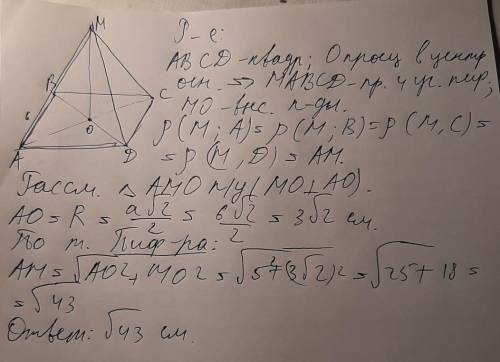 M
B
C
6
O
A
D
Р-е:
ABCD-квадр; О проец в центр
осн. => MABCD-пр. 4 уг. пир,
MO-выс. п-ды.
ρ(M; A)=ρ(M; B)=ρ(M, C)=
=ρ(M, D)=AM.
Рассм. △ AMO п/у (MO⊥AO).
AO=R=a√2/2=6√2/2=3√2 см.
По т. Пиф-ра:
AM=√AO2+MO2=√5²+(3√2)2=√25+18=
=√43
Ответ: √43 см.